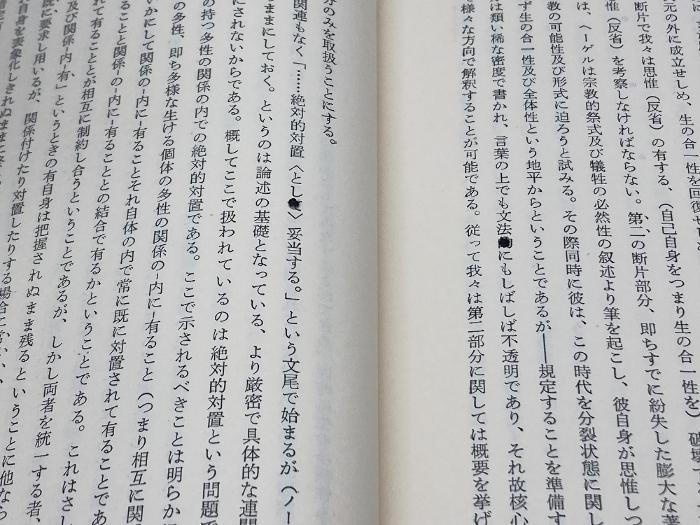 元の外に成立せしめ、生の合一性を回復せ
断片で我々は思惟（反省）の有する、（自己自身をつまり生の合一性を）破壊
惟（反省）を考察しなければならない。第二の断片部分、即ちすでに紛失した膨大な著
は、ヘーゲルは宗教的祭式及び犠牲の必然性の叙述より筆を起こし、彼自身が思惟しつ
教の可能性及び形式に迫ろうと試みる。その際同時に彼は、この時代を分裂状態に関し
ず生の合一性及び全体性という地平からということであるが――規定することを準備す
は類い稀な密度で書かれ、言葉の上でも文法にもしばしば不透明であり、それ故核心
様々な方向で解釈することが可能である。従って我々は第二部分に関しては概要を挙げ
のみを取扱うことにする。
関連もなく「……絶対的対置〈とし〉妥当する。」という文尾で始まるが（ノー
ままにしておく。というのは論述の基礎となっている、より厳密で具体的な連関
にされないからである。概してここで扱われているのは絶対的対置という問題で
の持つ多性の関係の内での絶対的対置である。ここで示されるべきことは明らかに
の多性、即ち多様な生ける個体の多性の関係の-内に-有ること（つまり相互に関
いかにして関係の-内に-有ることそれ自体の内で常に既に対置されて有ることであ
ることと関係-の-内に-有ることとの結合で有るかということである。これはさし
れて有ることとが相互に制約し合うということであるが、しかし両者を統一する者、
及び関係-内-有」というときの有自身は把握されぬまま残るということに他なら
既に要求し用いるが、関係付けたり対置したりする場合に常に
自身を表象化しきれぬままに